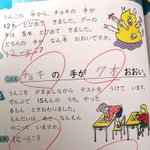 うんこの 中から、チョキの 手が
12本 とび出て きました。グーの
手は 5本 とび出て きました。
どちらの 手が なん本 おおいですか。
12-5=7
こたえ チョキ の 手が 7本 おおい。
うんこを しながら テストを うけて います。
ぜんぶで 15もんの うち、やっと
6もん おわりました。
あと なんもん
のこって いますか。
15-6=9